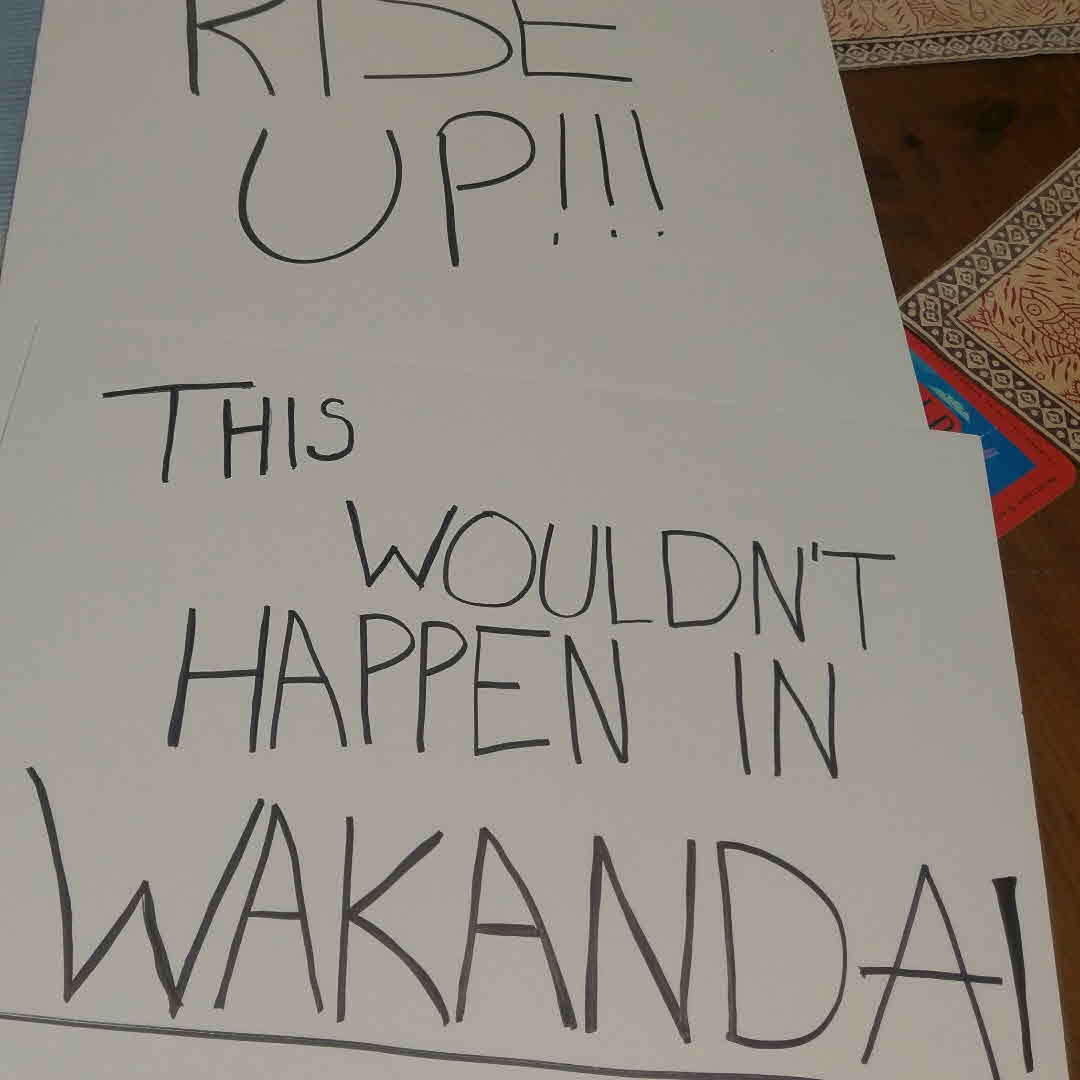 RISE
UP!!!
THIS
WOULDN'T
HAPPEN IN
WAKANDA!